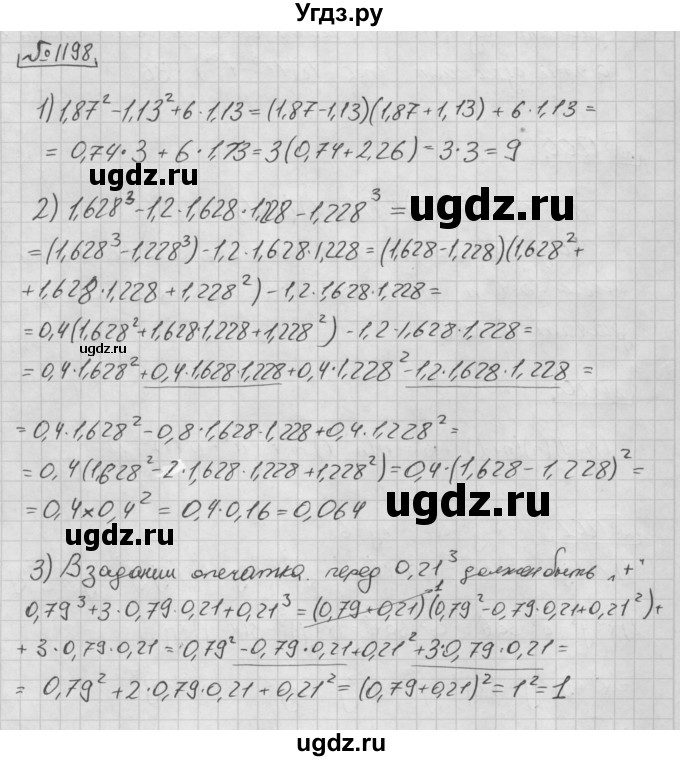 Угдз.ру
№1198.
1) 1,87² - 1,13² + 6·1,13 = (1,87 - 1,13)(1,87 + 1,13) + 6·1,13 =
= 0,74·3 + 6·1,13 = 3(0,74 + 2,26) = 3·3 = 9
ugdz.ru
2) 1,628³ - 1,2·1,628·1,228 - 1,228³ =
ugdz.ru
= (1,628³ - 1,228³) - 1,2·1,628·1,228 = (1,628 - 1,228)(1,628² +
+ 1,628·1,228 + 1,228²) - 1,2·1,628·1,228 =
= 0,4(1,628² + 1,628·1,228 + 1,228²) - 1,2·1,628·1,228 =
ugdz.ru
= 0,4·1,628² + 0,4·1,628·1,228 + 0,4·1,228² - 1,2·1,628·1,228 =
= 0,4·1,628² - 0,8·1,628·1,228 + 0,4·1,228² =
= 0,4(1,628² - 2·1,628·1,228 + 1,228²) = 0,4·(1,628 - 1,228)² =
= 0,4×0,4² = 0,4·0,16 = 0,064
ugdz.ru
3) В задании опечатка. перед 0,21³ должен быть „+"
0,79³ + 3·0,79·0,21 + 0,21³ = (0,79 + 0,21)¹(0,79² - 0,79·0,21 + 0,21²) +
+ 3·0,79·0,21 = 0,79² - 0,79·0,21 + 0,21² + 3·0,79·0,21 =
= 0,79² + 2·0,79·0,21 + 0,21² = (0,79 + 0,21)² = 1² = 1
ugdz.ru